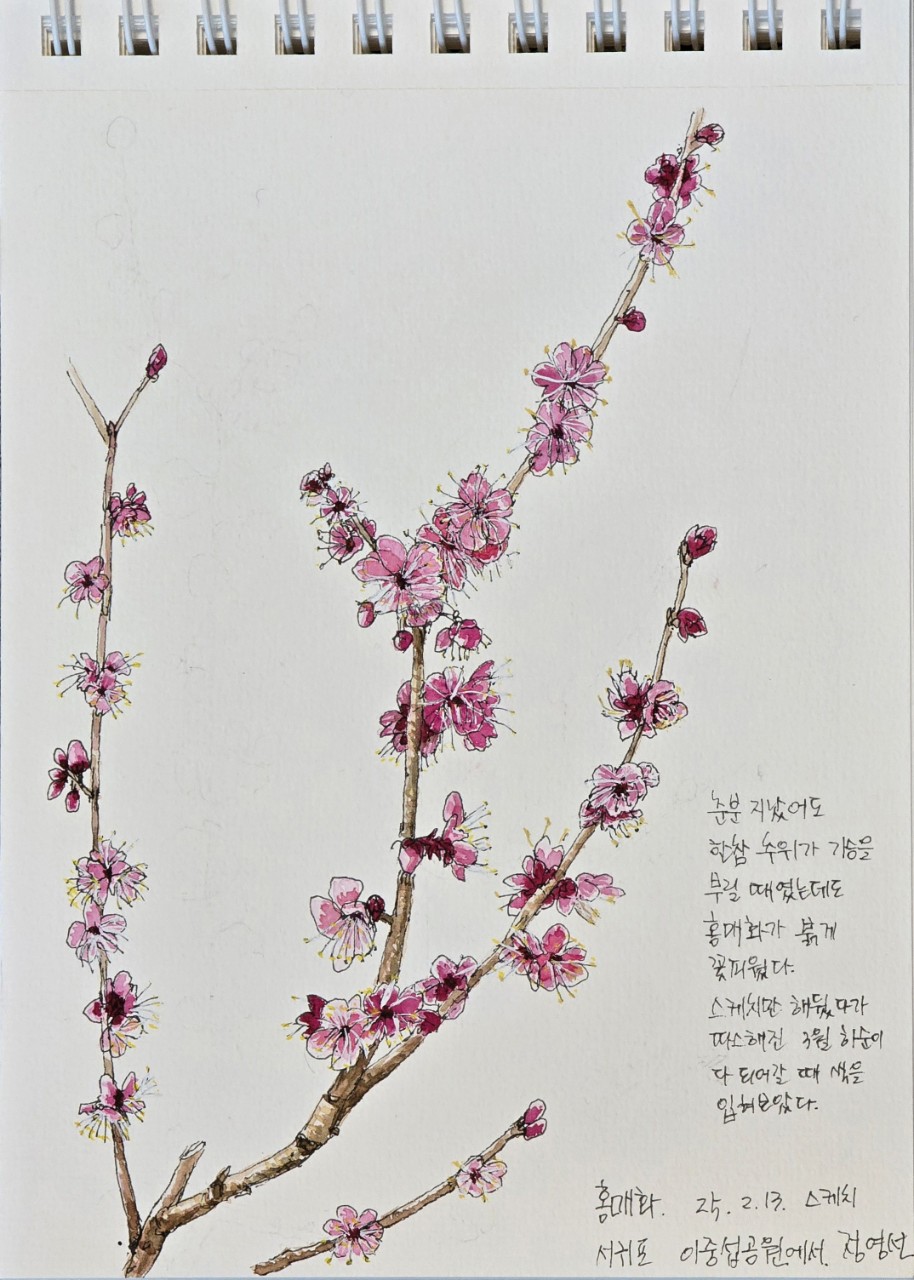 춘분 지났어도
한참 추위가 기승을
부릴 때였는데도
홍매화가 붉게
꽃피웠다.
스케치만 해뒀다가
따스해진 3월 하순이
다 되어갈 때 색을
입혀보았다.
홍매화. 25. 2. 13. 스케치
서귀포 이중섭공원에서. 정영선